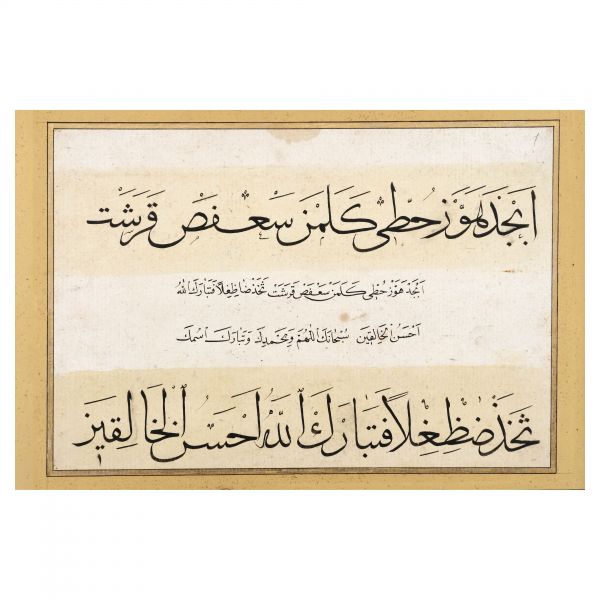 اَبْجَدْ هَوَّزْ حُطِّى كَلَمَنْ سَعْفَصْ قَرَشَتْ
اَبْجَدْ هَوَّزْ حُطِّى كَلَمَنْ سَعْفَصْ قَرَشَتْ ثَخَّذْ ضَاظِغِلاً فَتَبَارَكَ اللّٰهُ
اَحْسَنُ الْخَالِقِينَ سُبْحَانَكَ اللّٰهُمَّ وَبِحَمْدِكَ وَتَبَارَكَ اسْمُكَ
ثَخَّذْ ضَظِغِلاً فَتَبَارَكَ اللّٰهُ اَحْسَنُ الْخَالِقِينَ